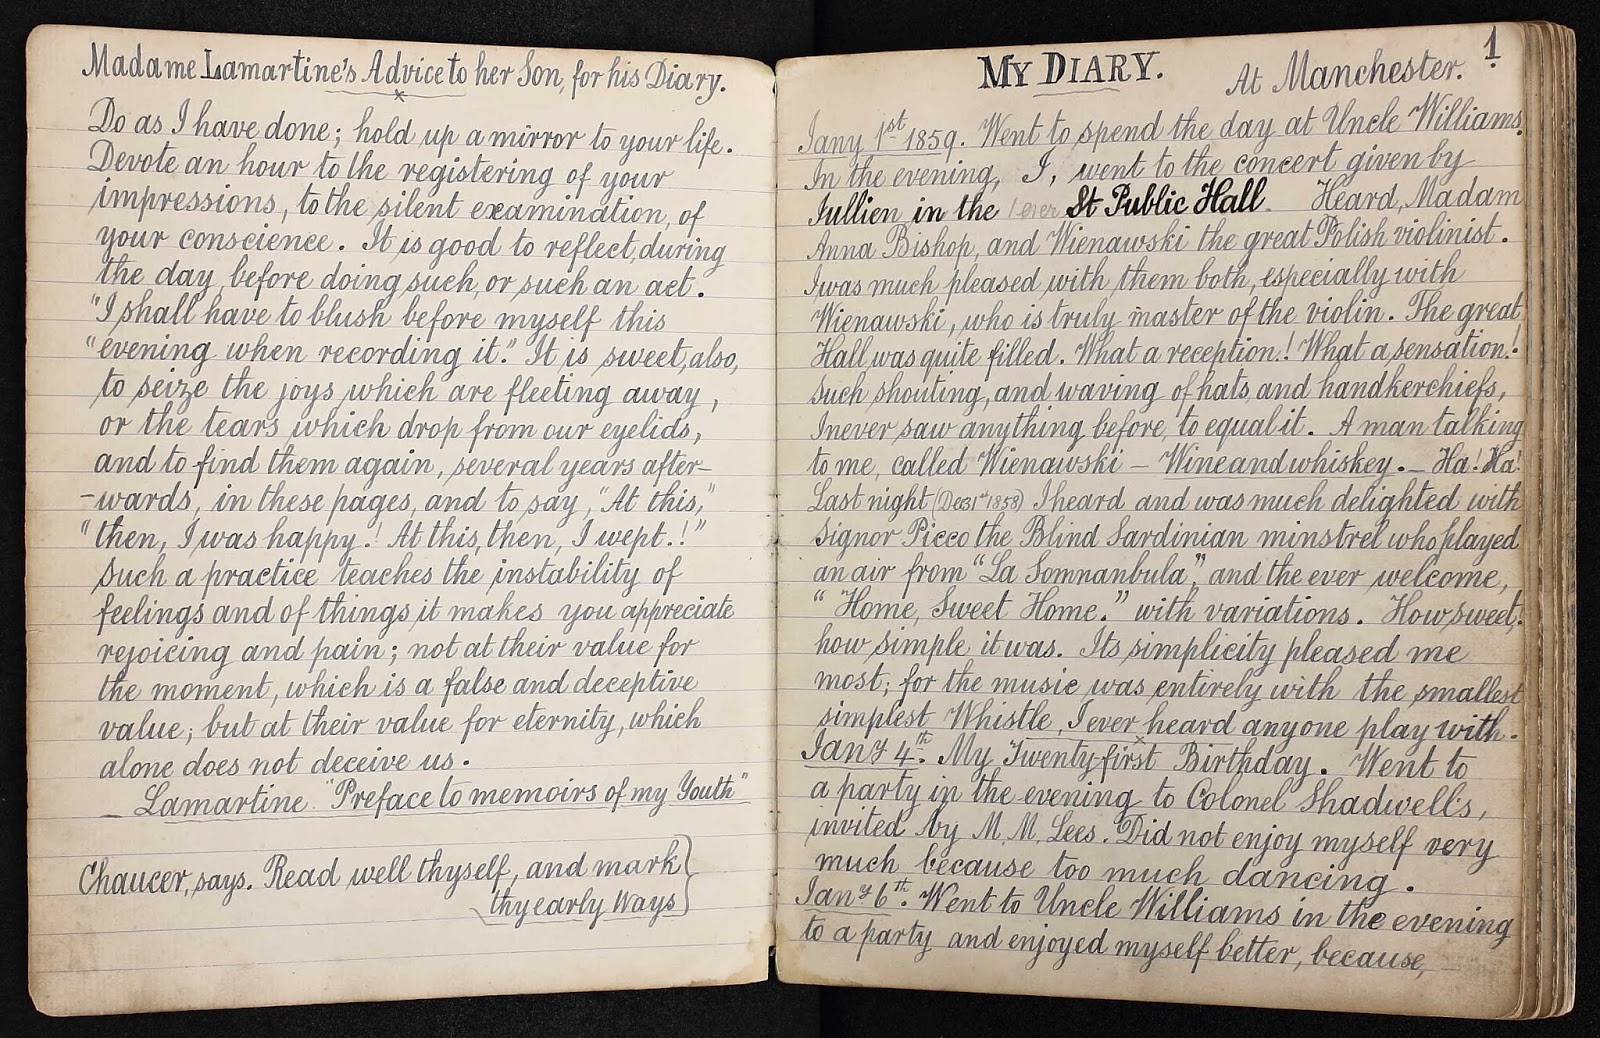 Madame Lamartine's Advice to her Son, for his Diary.
Do as I have done; hold up a mirror to your life.
Devote an hour to the registering of your
impressions, to the silent examination, of
your conscience. It is good to reflect, during
the day, before doing such, or such an act.
"I shall have to blush before myself this
"evening when recording it." It is sweet, also,
to seize the joys which are fleeting away,
or the tears which drop from our eyelids,
and to find them again, several years after-
-wards, in these pages, and to say, "At this,"
"then, I was happy.! At this, then, I wept.!"
Such a practice teaches the instability of
feelings and of things it makes you appreciate
rejoicing and pain; not at their value for
the moment, which is a false and deceptive
value; but at their value for eternity, which
alone does not deceive us.
_ Lamartine "Preface to memoirs of my Youth"
Chaucer, says. Read well thyself, and mark
thy early Ways
1
MY DIARY. At Manchester.
Jany 1st 1859. Went to spend the day at Uncle Williams.
In the evening, I, went to the concert given by
Jullien in the St Public Hall. Heard, Madam
Anna Bishop, and Wienawski the great Polish violinist.
I was much pleased with them both, especially with
Wienawski, who is truly master of the violin. The great
Hall was quite filled. What a reception.! What a sensation.!
Such shouting, and waving of hats and handkerchiefs,
I never saw anything before, to equal it. A man talking
to me, called Wienawski – Wineandwhiskey. – Ha! Ha!
Last night (Dec 1858) I heard and was much delighted with
Signor Picco the Blind Sardinian minstrel who played
an air from "La Somnanbula", and the ever welcome,
"Home, Sweet Home." with variations. How sweet,
how simple it was. Its simplicity pleased me
most; for the music was entirely with the smallest
simplest Whistle, I ever heard anyone play with.
Jany 4th. My Twenty first Birthday. Went to
a party in the evening to Colonel Shadwell's,
invited by M. M. Lees. Did not enjoy myself very
much because too much dancing.
Jany 6th. Went to Uncle Williams in the evening
to a party and enjoyed myself better, because,